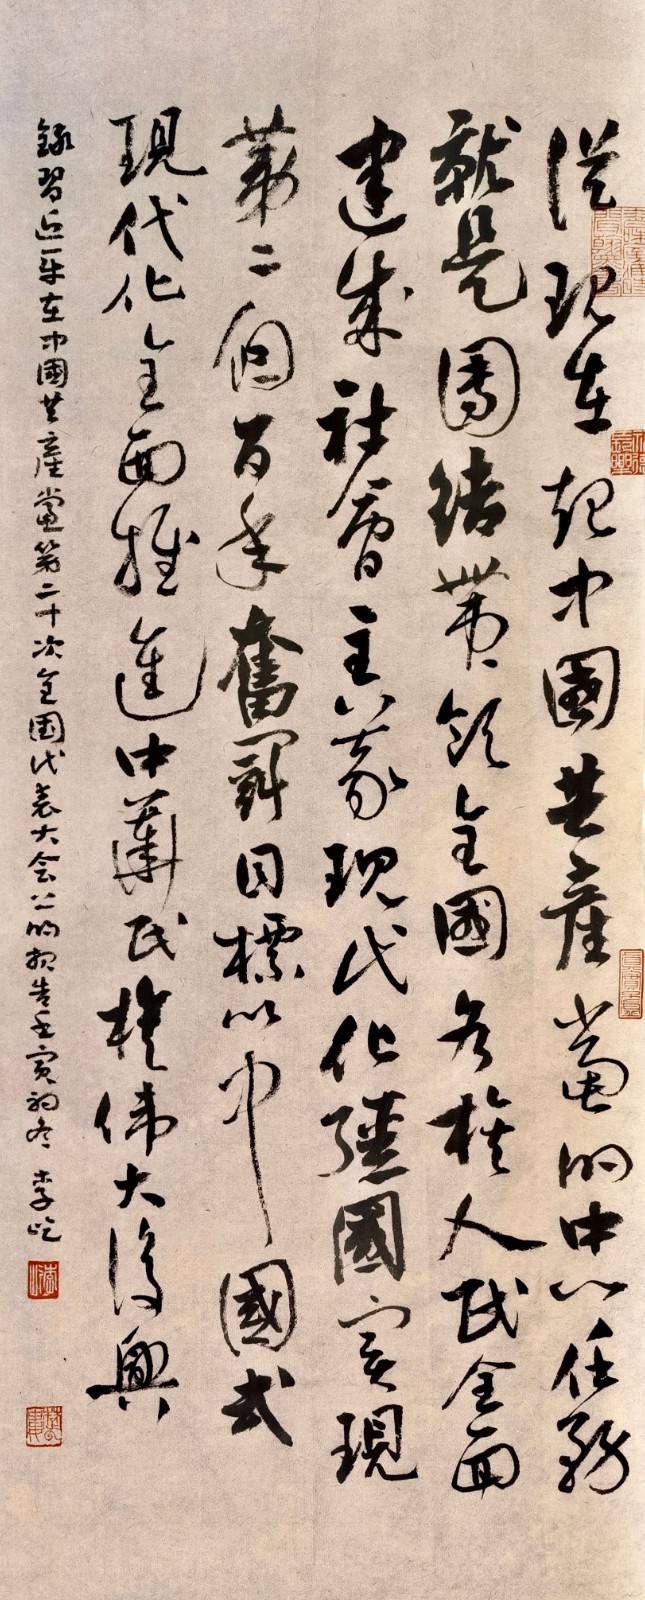 從現在起中國共產黨的中心任務
就是團結帶領全國各族人民全面
建成社會主義現代化強國實現
第二個百年奮鬥目標以中國式
現代化全面推進中華民族偉大復興
錄習近平在中國共產黨第二十次全国代表大会上的報告壬寅初冬 李屹